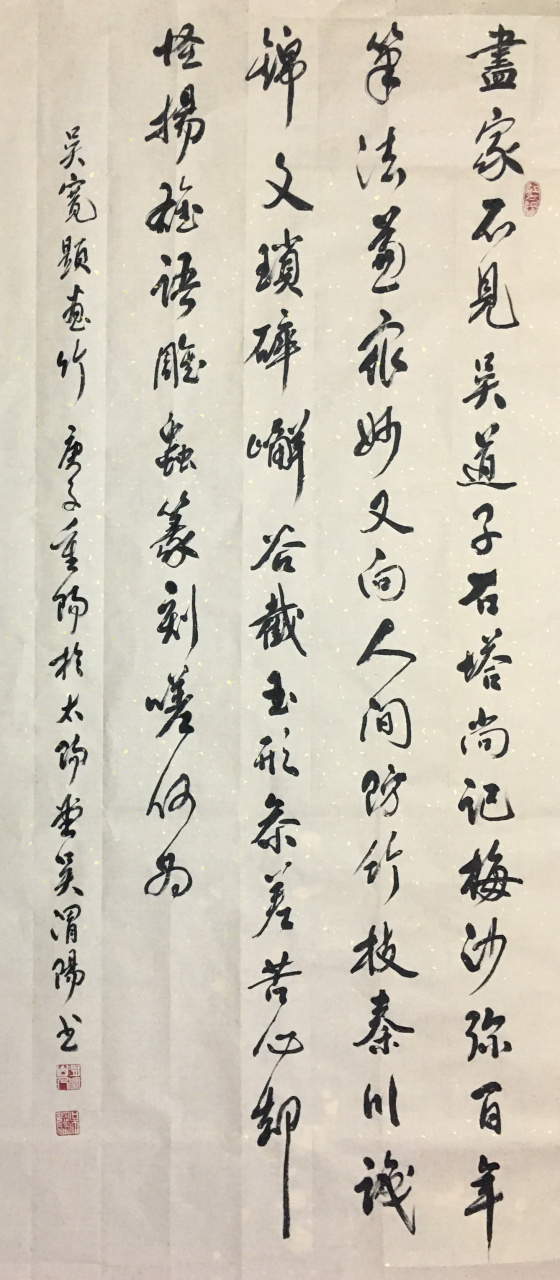 畫家不見吳道子石塔尚記梅沙弥百年
筆法並眾妙又向人間防竹枝秦川識
錦文瑣碎嶰谷截玉形參差苦心却
怪揚雄語雕蟲篆刻嗟何為
吳寬題畫竹 庚子重陽於太陽堂吳渭陽书